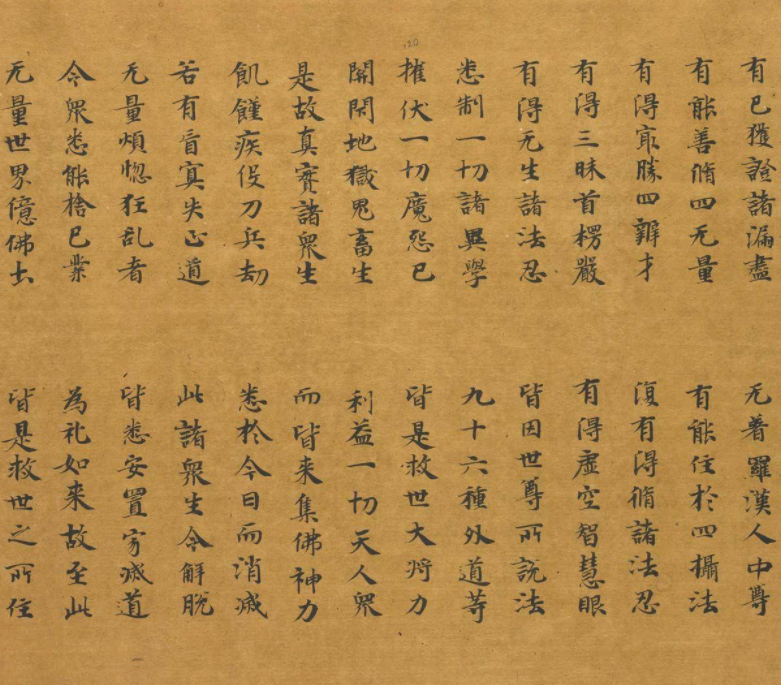 有已獲證諸漏盡 无著羅漢人中尊
有能善脩四无量 有能住於四攝法
有得冣勝四辯才 復有得脩諸法忍
有得三昧首楞嚴 有得虛空智慧眼
有得无生諸法忍 皆因世尊所說法
悉制一切諸異學 九十六種外道等
摧伏一切魔怨已 皆是救世大將力
關閇地獄鬼畜生 利益一切天人衆
是故真實諸衆生 而皆来集佛神力
飢饉疾伇刀兵劫 悉於今日而消滅
若有盲冥失正道 此諸衆生令解脫
无量煩惚狂乱者 皆悉安置寂滅道
令衆悉能捨已業 為礼如来故至此
无量世界億佛土 皆是救世之所住
120